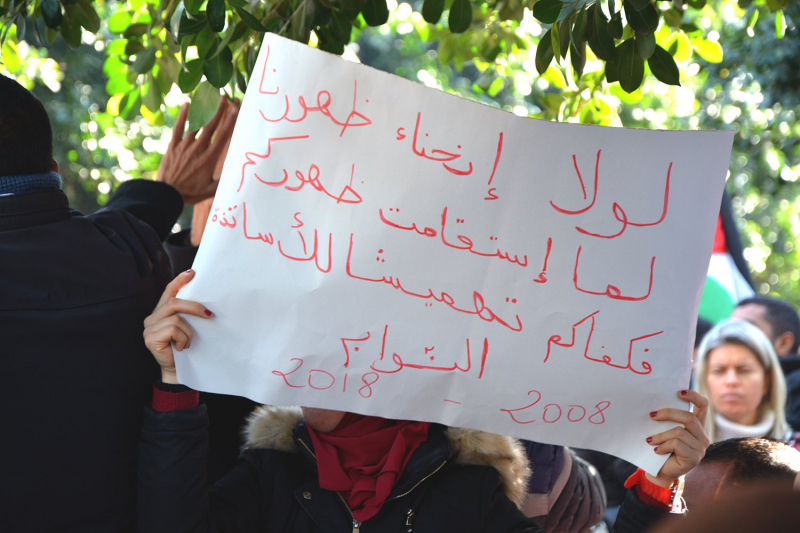 لولا إنحناء ظهورنا
لما إستقامت ظهوركم
فكفاكم تهميشا للأساتذة
النواب
2008 - 2018